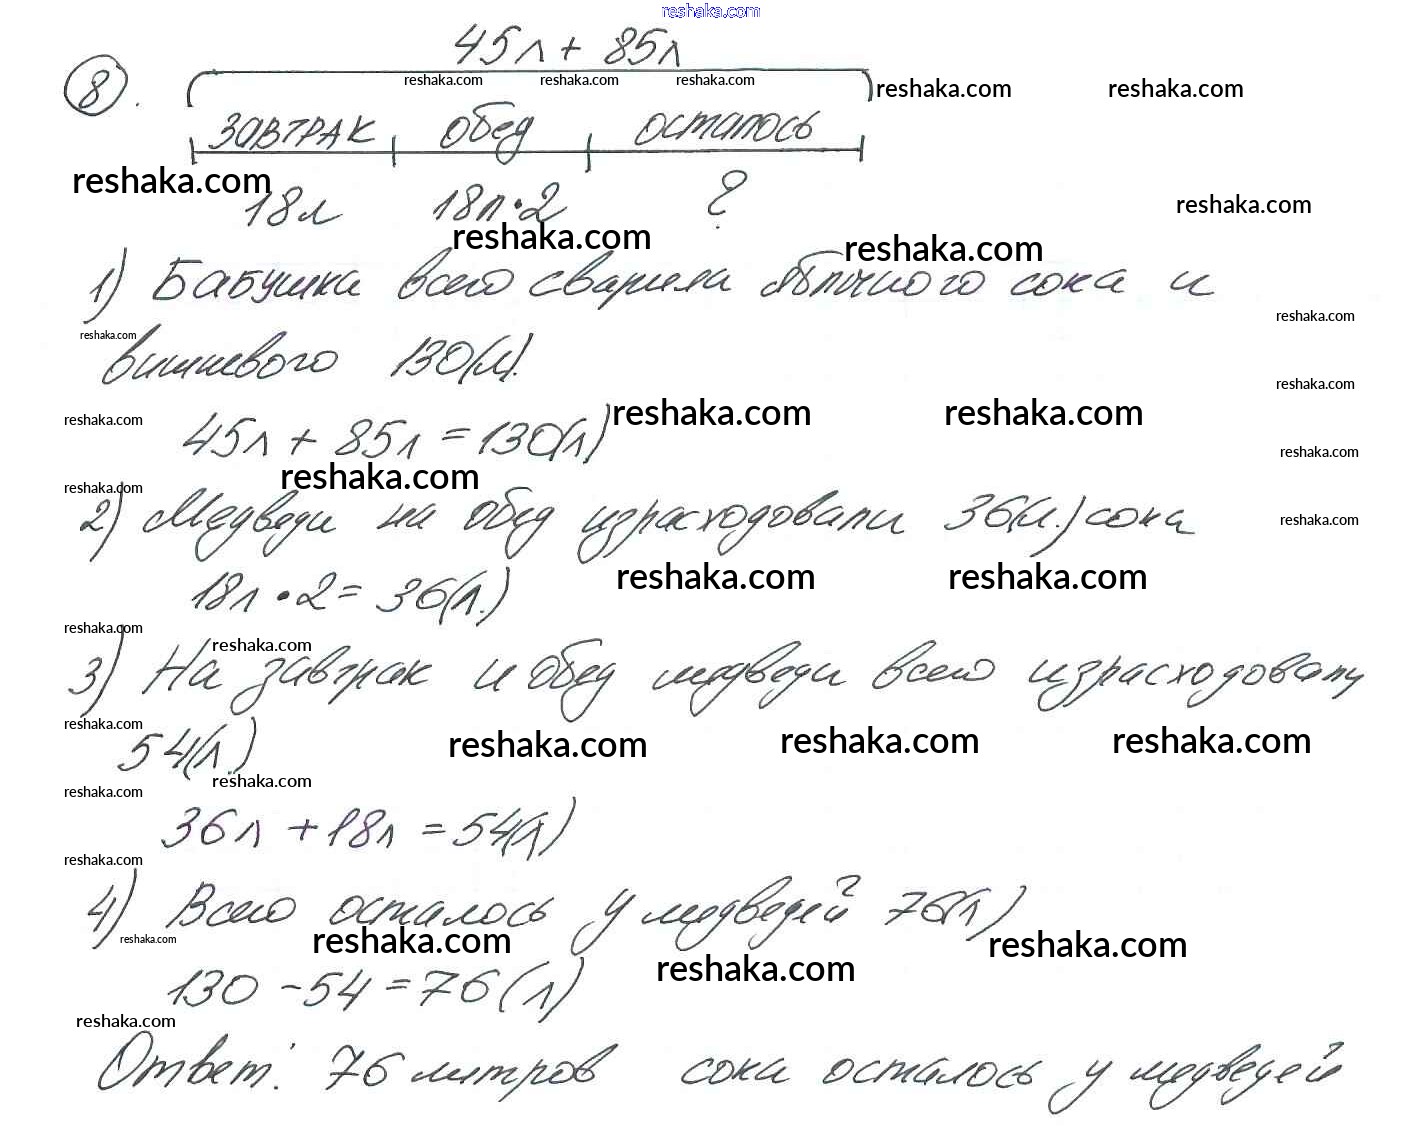 reshaka.com
45л + 85л
8.
reshaka.com reshaka.com reshaka.com reshaka.com reshaka.com
завтрак обед осталось
reshaka.com
18л 18л·2 ?
reshaka.com
reshaka.com reshaka.com
1) Бабушка всего сварила яблочного сока и
reshaka.com
reshaka.com
вишневого 130(л).
reshaka.com
reshaka.com reshaka.com reshaka.com
45л + 85л = 130(л)
reshaka.com
reshaka.com
reshaka.com
2) Медведи на обед израсходовали 36(л.) сока
reshaka.com
reshaka.com reshaka.com
18л · 2 = 36(л.)
reshaka.com
reshaka.com
3) На завтрак и обед медведи всего израсходовали
reshaka.com
54(л.)
reshaka.com reshaka.com reshaka.com
reshaka.com
reshaka.com
36л + 18л = 54(л)
reshaka.com
4) Всего осталось у медведей 76(л)
reshaka.com reshaka.com reshaka.com
reshaka.com
130 - 54 = 76 (л)
reshaka.com
Ответ: 76 литров сока осталось у медведей